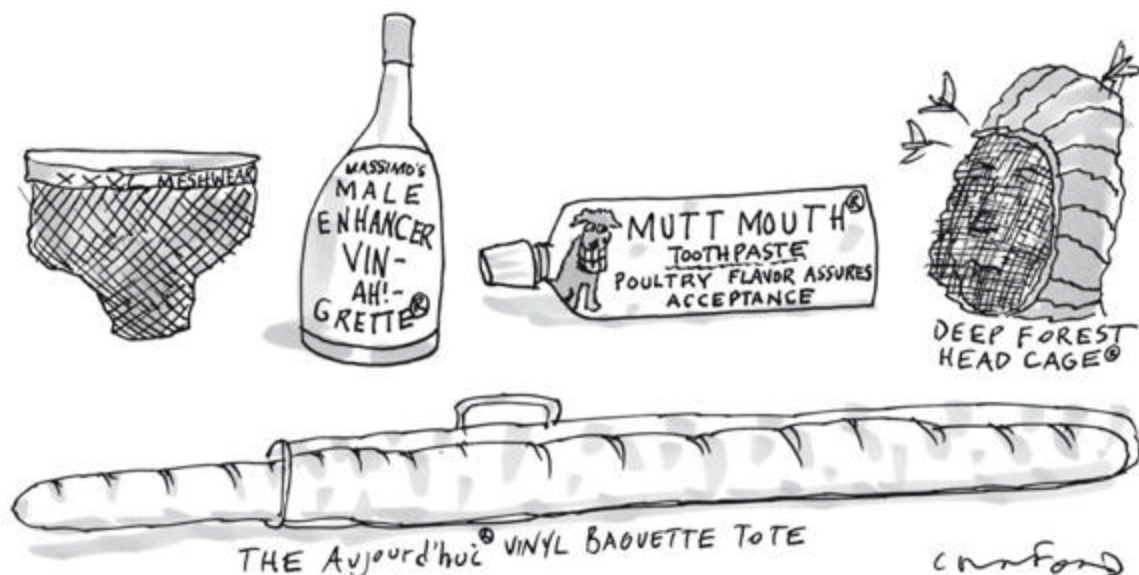 XXXL MESHWEAR
MASSIMO'S
MALE
ENHANCER
VIN-
AH!-
GRETTE®
MUTT MOUTH®
TOOTHPASTE
POULTRY FLAVOR ASSURES
ACCEPTANCE
DEEP FOREST
HEAD CAGE®
THE Aujourd'hui® VINYL BAGUETTE TOTE